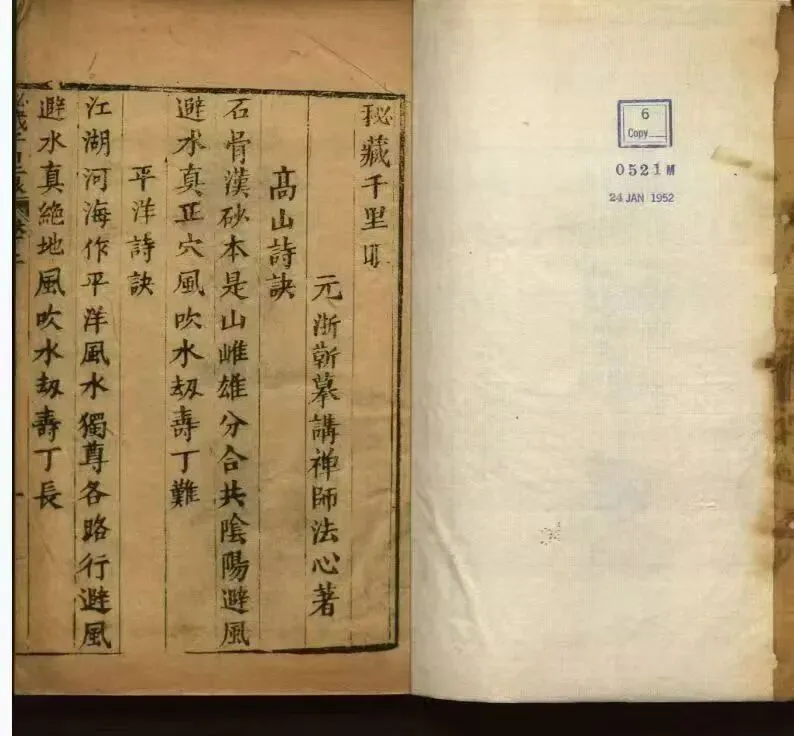 秘藏千里
元浙蘄幕講禅師法心著
髙山詩訣
石骨漢砂本是山雌雄分合共陰陽避風
避水真正穴風吹水刼壽丁難
平洋詩訣
江湖河海作平洋風水獨尊各路行避風
避水真絶地風吹水刼壽丁長
6
Copy
0521M
24 JAN 1952